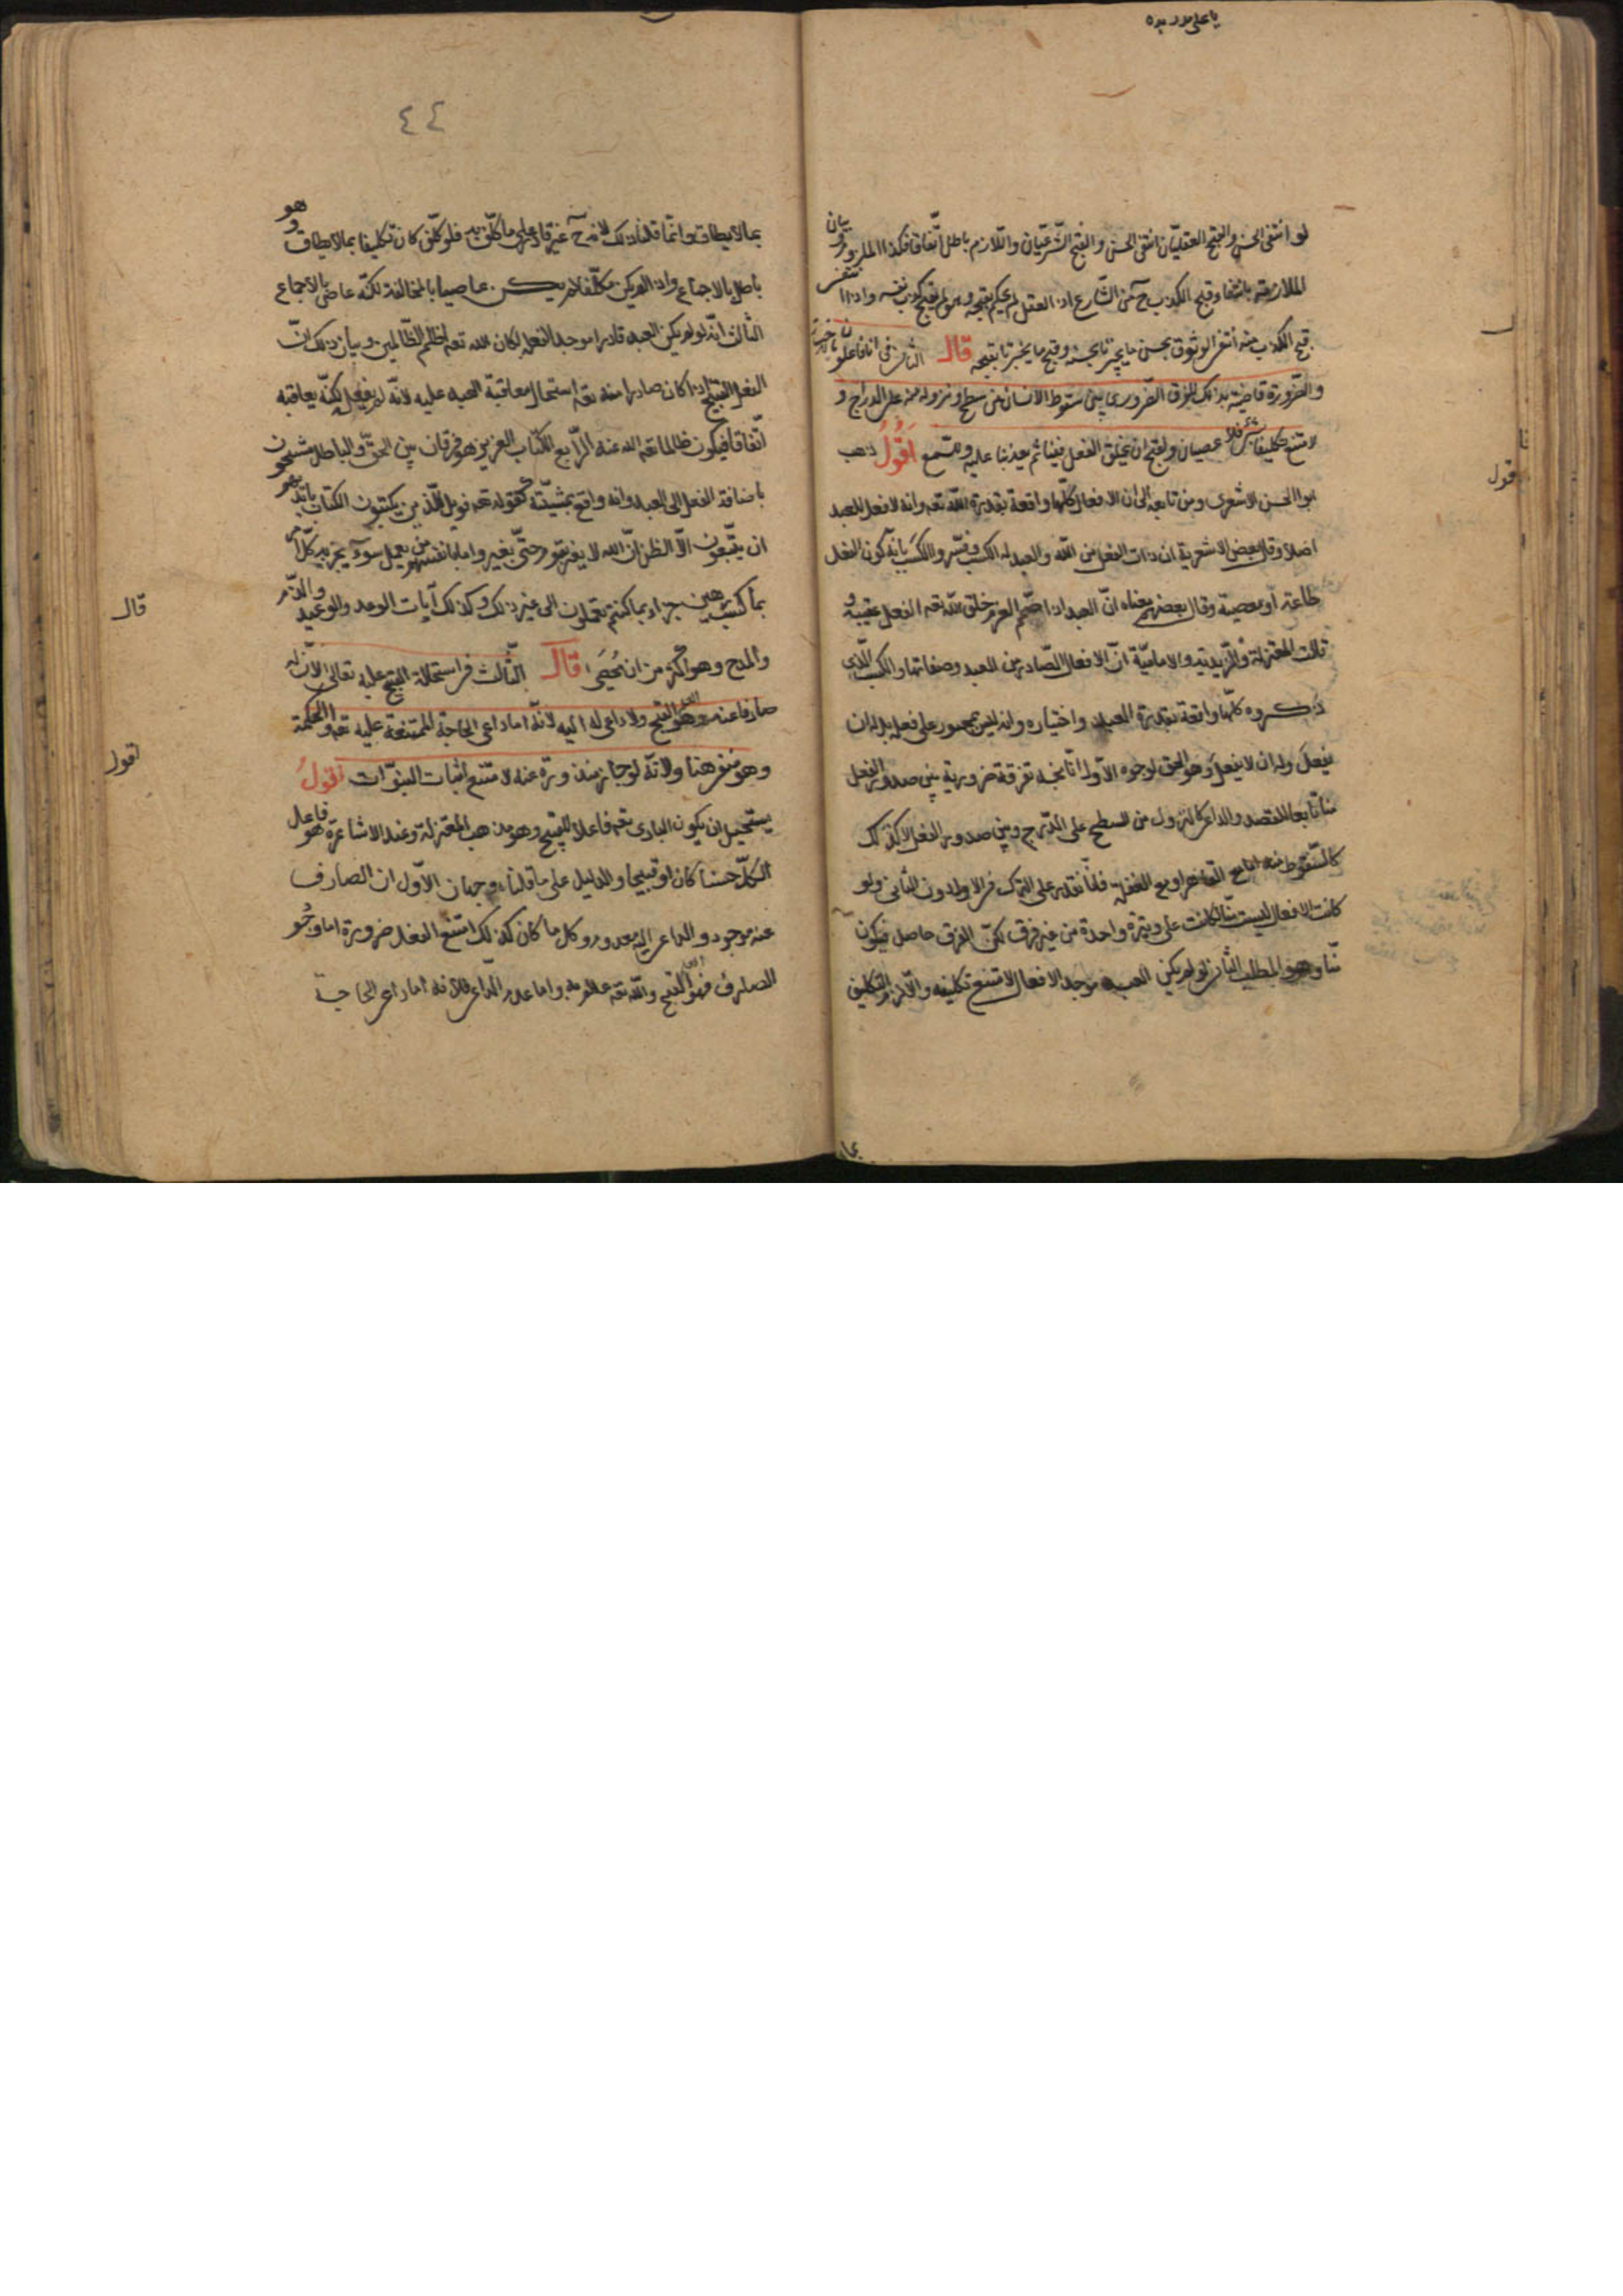 يا على مدد بده
لو انتفى الحسن والقبح العقليّان انتفى الحسن والقبح الشّرعيّان واللّازم باطل اتّفاقا فكذا الملزوم وبيان
الملازمة بانتفاء قبح الكذب ح من الشّارع اذ العقل لم يحكم بقبحه وهو لم يقبح كذب نفسه واذا انتفى
قبح الكذب منه انتفى الوثوق بحسن ما يخبرنا بحسنه وقبح ما يخبرنا بقبحه قال الثانى فى انا فاعلون بالاختيار
والضّرورة قاضية بذلك للفرق الضّرورى بين سقوط الانسان من سطح ونزوله منه على الدرج و
لامتنع تكليفنا بشئ فلا عصيان ولقبح ان يخلق الفعل فينا ثم يعذبنا عليه وللسّمع اَقُولُ ذهب
ابو الحسن الاشعرى ومن تابعه الى ان الافعال كلّها واقعة بقدرة اللّه تعه وانه لا فعل للعبد
اصلا وقال بعض الاشعرية ان ذات الفعل من اللّه والعبد له الكسب وفسّروا الكسب بانّه كون الفعل
طاعة او معصية وقال بعضهم معناه انّ العبد اذا صمّم العزم خلق اللّه تعه الفعل عقيبه و
قالت المعتزلة والزّيدية والاماميّة انّ الافعال الصّادرة من العبد وصفاتها والكسب الّذى
ذكروه كلّها واقعة بقدرة العبد واختياره وانه ليس بمجبور على فعله بل له ان
يفعل وله ان لا يفعل وهو الحق لوجوه الاوّل انّا نجد تفرقة ضرورية بين صدور الفعل
منا تابعا للقصد والداعى كالنزول من السطح على الدّرج وبين صدور الفعل لا كذلك
كالسّقوط منه اما مع القاهر او مع الغفلة فانّا نقدر على الترك فى الاول دون الثانى ولو
كانت الافعال ليست منّا لكانت على وتيرة واحدة من غير فرق لكنّ الفرق حاصل فيكون
منّا وهو المطلب الثانى لو لم يكن العبد موجدا لافعاله لامتنع تكليفه والّا لزم التكليف
بما
قول
٤٤
بما لا يطاق وانّما قلنا ذلك لانه ح غير قادر على ما كلّف به فلو كلّف كان تكليفا بما لا يطاق وهو
باطل بالاجماع واذا لم يكن مكلّفا لم يكن عاصيا بالمخالفة لكنّه عاص بالاجماع
الثالث انّه لو لم يكن العبد قادرا موجدا لفعله لكان اللّه تعه اظلم الظّالمين وبيان ذلك انّ
الفعل القبيح اذا كان صادرا منه تعه استحال معاقبة العبد عليه لانّه لم يفعله لكنّه يعاقبه
اتّفاقا فيكون ظالما تعه اللّه عنه الرّابع الكتاب العزيز هو فرقان بين الحقّ والباطل مشحون
باضافة الفعل الى العبد وانه واقع بمشيّته كقوله تعه فويل للّذين يكتبون الكتاب بايديهم
ان يتّبعون الّا الظن انّ اللّه لا يغير ما بقوم حتّى يغيروا ما بانفسهم من يعمل سوءا يجز به كلّ امرئ
بما كسب رهين جزاء بما كنتم تعملون الى غير ذلك وكذلك آيات الوعد والوعيد والذّم
والمدح وهو اكثر من ان تُحصَى قال الثّالث فى استحالة القبح عليه تعالى لانّ له
صارفا عنه وهو العلم بالقبح ولا داعى له اليه لانّه اما داعى الحاجة الممتنعة عليه تعه او الحكمة
وهو منفى هنا ولانّه لو جاز صدوره عنه لامتنع اثبات النبوّات اقولُ
يستحيل ان يكون البارى تعه فاعلا للقبيح وهو مذهب المعتزلة وعند الاشاعرة هو فاعل
الكلّ حسنا كان او قبيحا والدليل على ما قلناه وجهان الاوّل ان الصارف
عنه موجود والداعى اليه معدوم وكل ما كان كذلك امتنع الفعل ضرورة اما وجُود
الصارف فهو القبح واللّه تعه عالم به واما عدم الداعى فلانه اما داعى الحاجة
قال
اقول